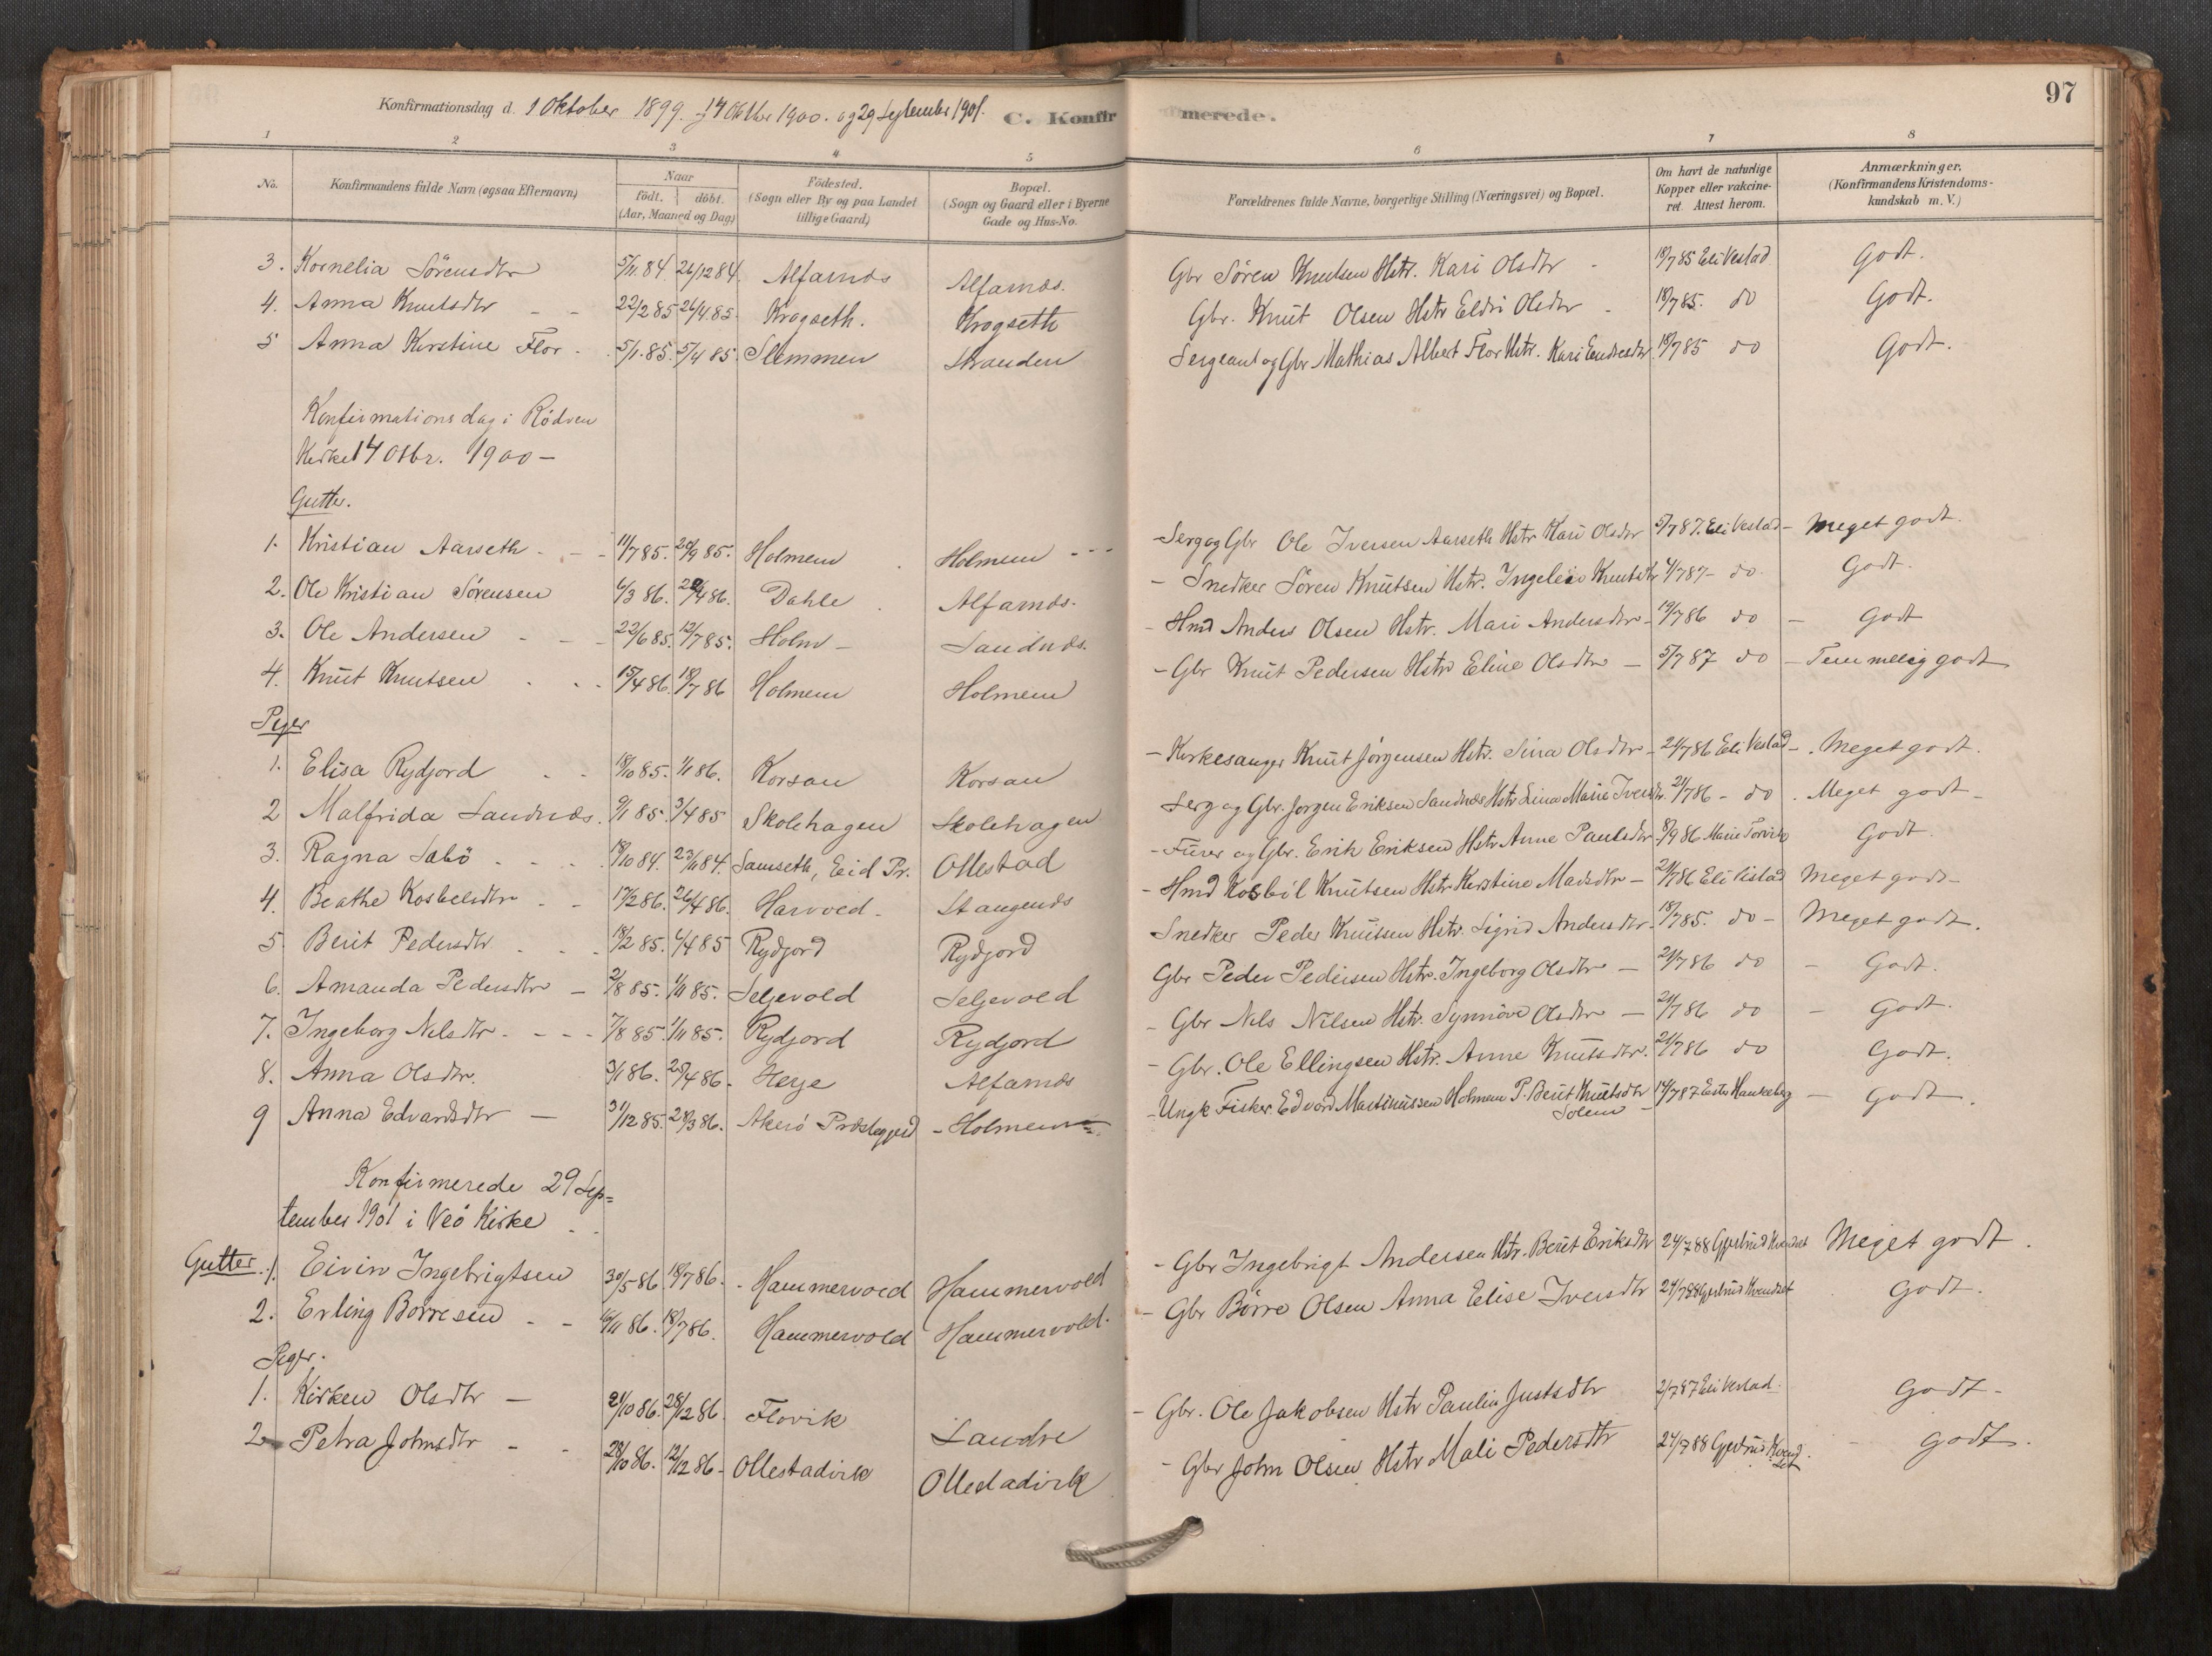 97
Konfirmationsdag d. 1 Oktober 1899. 14 Oktbr 1900. og 29 September 1901. C. Konfirmerede.
1 2 3 4 5 6 7 8
No. Konfirmandens fulde Navn (ogsaa Efternavn) Naar födt. döbt. (Aar, Maaned og Dag) Födested. (Sogn eller By og paa Landet tillige Gaard) Bopæl. (Sogn og Gaard eller i Byerne Gade og Hus-No. Forældrenes fulde Navne, borgerlige Stilling (Næringsvei) og Bopæl. Om havt de naturlige Kopper eller vakcineret. Attest herom. Anmærkninger. (Konfirmandens Kristendomskundskab m. V.)
3. Kornelia Sörensdtr 5/11.84. 26/12 84. Alfarnæs Alfarnæs. Gbr Sören Knutsen Hstr. Kari Olsdtr - 18/7 85 Eli Vestad Godt.
4. Anna Knutsdtr - - 22/2 85 26/4.85. Krogseth. Krogseth Gbr. Knut Olsen Hstr Eldri Olsdtr - 18/7 85. do Godt.
5 Anna Kirstine Flor - 5/1.85. 5/4 85. Slemmen Stranden Sergeant og Gbr Mathias Albert Flor Hstr. Kari Endresdtr 18/7 85 do Godt.
Konfirmationsdag i Rödven
Kirke 14 Otbr. 1900 -
Gutter.
1. Kristian Aarseth - - - 11/7 85. 20/9 85. Holmem Holmem - - - Serg og Gbr Ole Iversen Aarseth Hstr Kari Olsdtr 5/7 87. Eli Vestad - Meget godt.
2. Ole Kristian Sörensen 6/3 86. 26/4 86. Dahle Alfarnæs. - Snedker Sören Knutsen Hstr. Ingeleiv Knutsdtr 4/7 87 - do Godt.
3. Ole Andersen - - - 22/6 85. 12/7 85. Holm - Sandnæs. - Hmd Anders Olsen Hstr. Mari Andersdtr - 19/7 86 do - Godt
4. Knut Knutsen - - - 15/4 86. 18/7 86 Holmem Holmem - Gbr Knut Pedersen Hstr Eline Olsdtr - 5/7 87 do - Temmelig godt
Piger
1. Elisa Rydjord - - 18/10 85. 1/1 86. Korsan Korsan - Kirkesanger Knut Jörgensen Hstr. Sina Olsdtr - 21/7 86 Eli Vestad - Meget godt.
2 Malfrida Sandnæs. 9/1 85. 3/4 85 Skolehagen Skolehagen Serg og Gbr. Jorgen Eriksen Sandnæs Hstr Lina Marie Iversdtr. 21/7 86 - do. Meget godt -
3. Ragna Sæbö - - - 18/10 84. 23/11 84. Samseth, Eid Pr. Ollestad - Furer og Gbr. Erik Eriksen Hstr Anne Paulsdtr 8/9 86 Marie Torvik Godt.
4. Beathe Kosbelsdtr - - 17/2 86. 26/4 86. Harvold - Stangenæs - Hmd Kosbil Knutsen Hstr Kirstine Madsdtr - 21/7 86 Eli Vestad Meget godt -
5. Berit Pedersdtr - - - 18/2 85. 6/4 85 Rydjord Rydjord Snedker Peder Knutsen Hstr. Sigrid Andersdtr. 18/7 85. do - Meget godt.
6. Amanda Pedersdtr - 2/8 85. 1/11 85. Seljevold Seljevold Gbr Peder Pedersen Hstr. Ingeborg Olsdtr - 21/7 86 do - Godt.
7. Ingeborg Nilsdtr - - - 7/8 85. 1/11 85. Rydjord Rydjord - Gbr Nils Nilsen Hstr. Synnöve Olsdtr - 21/7 86 do - Godt.
8. Anna Olsdtr. 3/1 86. 26/4 86 - Heye Alfarnæs - Gbr. Ole Ellingsen Hstr. Anne Knutsdtr. 21/7 86 do Godt.
9 Anna Edvardsdtr - 31/12 85. 28/3 86. Akerö Præstegjeld - Holmem - Ungk Fisker Edvard Martinussen Holmem P. Berit Knutsdtr Solem - 14/7 87 - Godt.
Konfirmerede 29 Sep-
tember 1901 i Veö Kirke
Gutter. 1. Eivin Ingebrigtsen 30/5 86. 18/7 86. - Hammervold Hammervold - Gbr Ingebrigt Andersen Hstr. Berit Eriksdtr 24/7 88 Gjertrud Kvendset Meget godt.
2. Erling Börresen - - 10/11 86. 18/7 86. Hammervold Hammervold. - Gbr Börre Olsen Anna Elise Iversdtr 24/7 88 Gjertrud Kvendset Godt.
Piger.
1. Kirken Olsdtr - 21/10 86. 28/12 86. Flovik Landre - Gbr. Ole Jakobsen Hstr Paulin Justsdtr 2/7 87 Eli Vestad. Godt -
2. Petra Johnsdtr - - 28/10 86. 12/12 86 - Ollestadvik Ollestadvik - Gbr John Olsen Hstr Mali Pedersdtr 24/7 88 Gjertrud Kvendset. - godt.